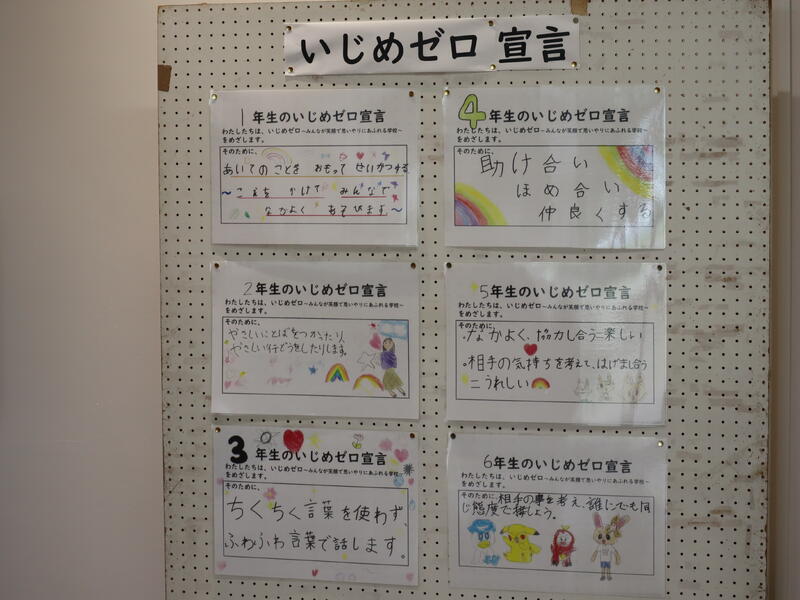 いじめゼロ 宣言
1年生のいじめゼロ宣言
わたしたちは、いじめゼロ~みんなが笑顔で思いやりにあふれる学校~
をめざします。
そのために、
あいてのことを おもって せいかつする
~こえを かけて みんなで
なかよく あそびます~
2年生のいじめゼロ宣言
わたしたちは、いじめゼロ~みんなが笑顔で思いやりにあふれる学校~
をめざします。
そのために、
やさしいことばをつかったり、
やさしい行どうをしたりします。
3年生のいじめゼロ宣言
わたしたちは、いじめゼロ~みんなが笑顔で思いやりにあふれる学校~
をめざします。
そのために、
ちくちく言葉を使わず、
ふわふわ言葉で話します。
4年生のいじめゼロ宣言
わたしたちは、いじめゼロ~みんなが笑顔で思いやりにあふれる学校~
をめざします。
そのために、
助け合い
ほめ合い
仲良くする
5年生のいじめゼロ宣言
わたしたちは、いじめゼロ~みんなが笑顔で思いやりにあふれる学校~
をめざします。
そのために、
・なかよく、協力し合う=楽しい
・相手の気持ちを考えて、はげまし合う
=うれしい
6年生のいじめゼロ宣言
わたしたちは、いじめゼロ~みんなが笑顔で思いやりにあふれる学校~
をめざします。
そのために、相手の事を考え、誰にでも同
じ態度で接しよう。